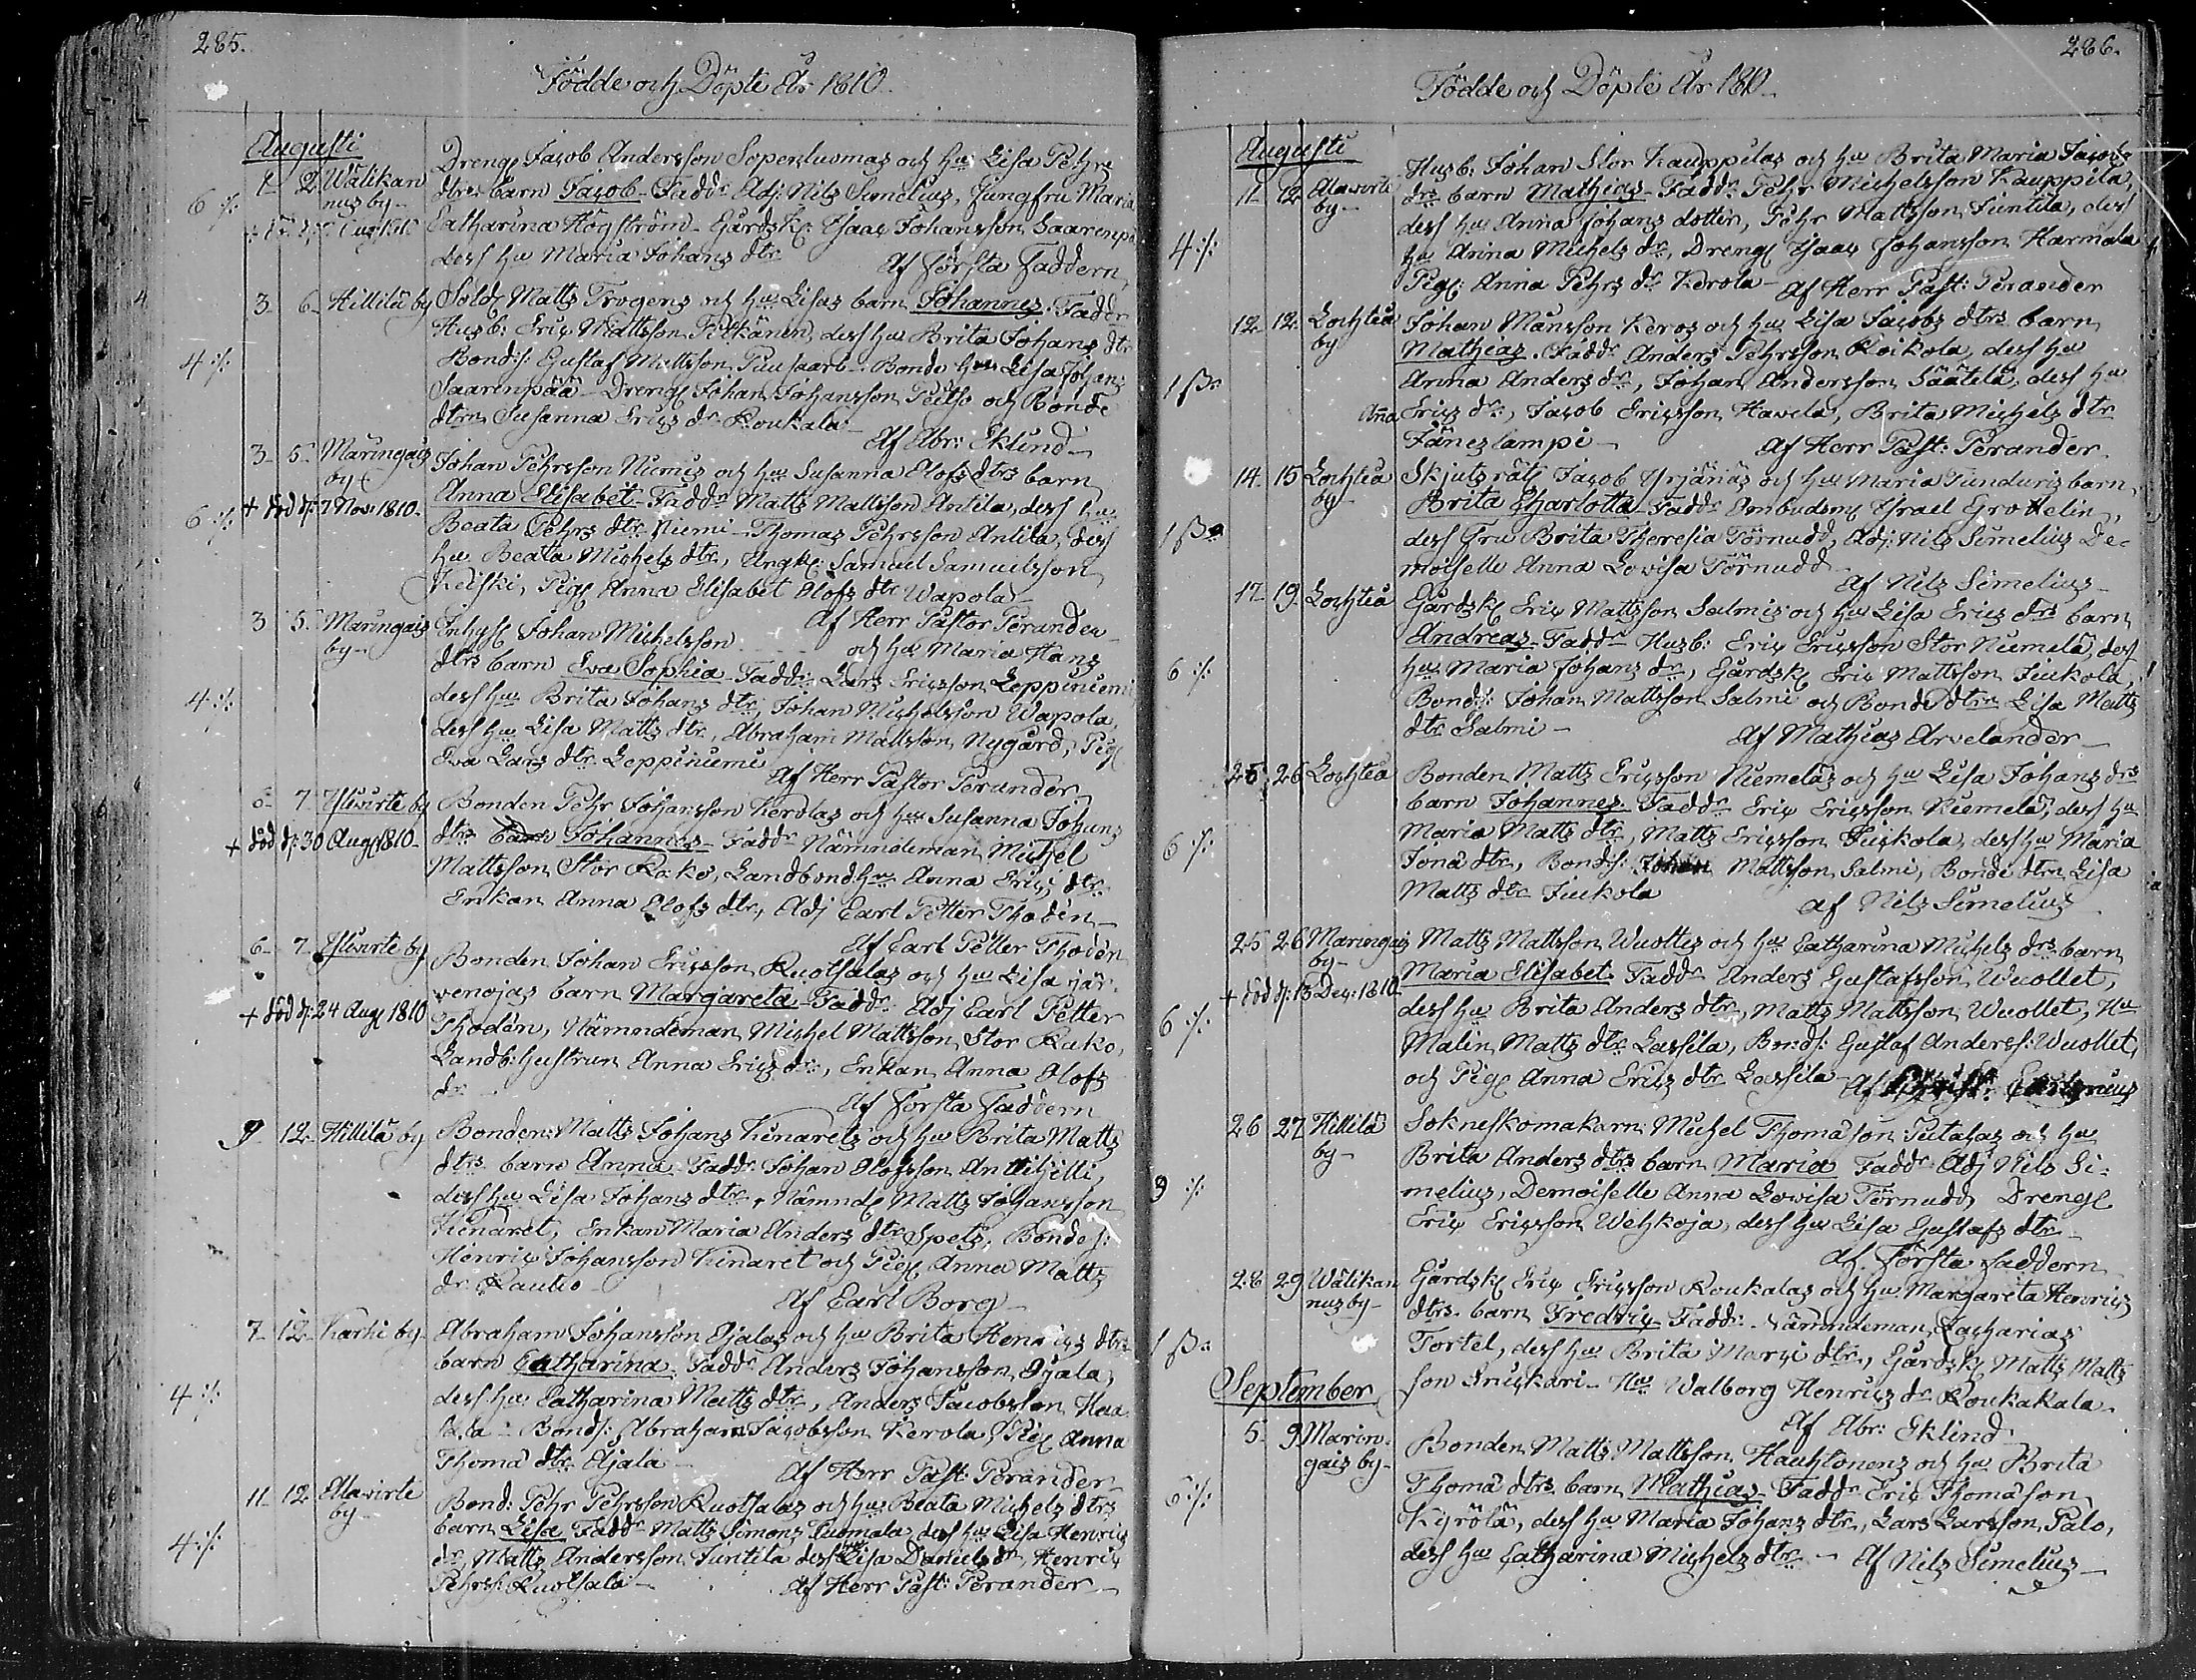 285.
Födde och Döpte År 1810.
Augusti
1 2 Wälikan Dreng Jacob Andersson Sopenluomas och hu Lisa Pehrs
nus by dtrs barn Jacob Faddr Adj: Nils Simelius, Jungfru Maria
6 :/:
Catharina Högström Gårdsk: Isaac Johansson Saarenpä
dess hu Maria Johans dtr
Af Första Faddern
3 6 Hillilä by Sold Matts Trogens och hu Lisas barn Johannes. Faddr
Husb: Eric Mattsson Pilkänen, dess hu Brita Johans dtr
4 :/: Bonds: Gustaf Mattsson Puusaari Bonde hu Lisa Johans
Saarenpää Dreng Johan Johansson Peitso och Bonde
dtrn Susanna Erics dr Roukala
Af Abr: Eklund
3 5 Maringais Johan Pehrsson Niemis och hu Susanna Olofs dtrs barn
by
Anna Elisabet Faddr Matts Mattsson Antila, dess hu
+ död d: 7 Nov: 1810.
6 :/: Beata Pehrs dtr Niemi Thomas Pehrsson Antila, dess
hu Beata Michels dtr, Samuel Samuelsson
Keiski, Pig Anna Elisabet Olofs dtr Wapola
Af Herr Pastor Perander
3 5 Maringais Inhys Johan Michelsson och hu Maria Hans
by
dtrs barn Eva Sophia Faddr Lars Ericsson Leppiniemi
4 :/: dess hu Brita Johans dtr, Johan Michelsson Wapola,
dess hu Lisa Matts dtr, Abraham Mattsson Nygård, Pig
Eva Lars dtr Leppiniemi
Af Herr Pastor Perander
6 7 Ylivirte by Bonden Pehr Johansson Kerolas och hu Susanna Johans
+ död d: 30 Aug 1810. dtrs barn Johannes Faddr Nämndeman Michel
Mattsson Stor Rako, Landbond hu Anna Erics dtr
Enkan Anna Olofs dtr, Adj Carl Petter Thodén
Af Carl Petter Thodén
6 7 Ylivirte by Bonden Johan Ericsson Ruothalas och hu Lisa jär-
wenojas barn Margareta Faddr Adj Carl Petter
+ död d: 24 Aug 1810 Thodén, Nämndeman Michel Mattsson Stor Rako,
Landb: hustrun Anna Erics dr, Enkan Anna Olofs
dr
Af Första Faddern
9 12 Hillilä by Bonden Matts Johans Kinarets och hu Brita Matts
dtrs barn Anna Faddr Johan Olofsson Anttihilli,
dess hu Lisa Johans dtr, Nämnd Matts Johansson
Kinaret, Enkan Maria Anders dtr Spets, Bondes:
Henric Johansson Kinaret och Pig Anna Matts
dr Rautio
Af Carl Borg
7 12 Karhi by Abraham Johansson Ojalas och hu Brita Henrics dtrs
barn Catharina Faddr Anders Johansson Ojala,
4 :/: dess hu Catharina Matts dtr, Anders Jacobsson
Bonds: Abraham Jacobsson Kerola, Pig Anna
Thoma dtr Ojala
Af Herr Past: Perander
11 12 Alavirte Bond: Pehr Pehrsson Ruothalas och hu Beata Michels dtrs
by
barn Lisa Faddr Matts Simons Tuomala, dess hu Lisa Henrics
4 :/: dr, Matts Andersson Juntila dess hu Lisa Daniels dr, Henric
Pehrss: Ruothala
Af Herr Past: Perander
286.
Födde och Döpte År 1810
Augusti
11 12 Alavirte Husb: Johan Stor Kauppilas och hu Brita Maria Jacobs
by
drs barn Mathias Faddr Pehr Michelsson Kauppila,
dess hu Anna Johans dotter, Pehr Mattsson Juntila, dess
4 :/: hu Anna Michels dr, Dreng Isaac Johansson Harmala
Pig: Anna Pehrs dr Kerola Af Herr Past: Perander
12 12 Lochteå Johan Månsson Keros och hu Lisa Jacobs dtrs barn
by
Mathias. Faddr Anders Pehrsson Roikola, dess hu
Anna Anders dr, Johan Andersson Säätelä, dess hu
Anna Erics dr:, Jacob Ericsson Havela, Brita Michels dtr
Jäneslampi
Af Herr Past: Perander.
14 15 Lochteå Skjutsrätt Jacob Yrjänäs och hu Maria Junduris barn
by
Brita Charlotta Faddr Ombudsm Israel Grothelin,
dess Fru Brita Theresia Törnudd, Adj: Nils Simelius De-
moiselle Anna Lovisa Törnudd
Af Nils Simelius
17 19 Lochteå Gårdsk Eric Mattsson Salmis och hu Lisa Erics drs barn
Andreas Faddr Husb: Eric Ericsson Stor Niemelä, dess
6 :/: hu Maria Johans dr, Gårdsk Eric Mattsson Juckola,
Bonds: Johan Mattsson Salmi och Bonde dtrn Lisa Matts
dtr Salmi
Af Mathias Arvelander
25 26 Lochteå Bonden Matts Ericsson Niemeläs och hu Lisa Johans drs
barn Johannes. Faddr Eric Ericsson Niemelä, dess hu
Maria Matts dtr, Matts Ericsson Juckola, dess hu Maria
6 :/: Jona dtr, Bonds: Johan Mattsson Salmi, Bonde dtrn Lisa
Matts dtr Juckola
af Nils Simelius
25 26 Maringais Matts Mattsson Wuoltes och hu Catharina Michels drs barn
by
Maria Elisabet Faddr Anders Gustafsson Wuollet,
+ död d: 13 Dec: 1810
6 :/: dess hu Brita Anders dtr, Matts Mattsson Wuollet, Hu
Malin Matts dtr Lassila, Bonds: Gustaf Anderss: Wuollet,
och Pig Anna Erics dtr Lassila Af
26 27 Hillilä Sockneskomakarn Michel Thomason Peitahas och hu
by
Brita Anders dtrs barn Maria Faddr Adj Nils Si-
3 :/: melius, Demoiselle Anna Lovisa Törnudd, Dreng
Eric Ericsson Wehkoja, dess hu Lisa Gustafs dtr
Af Första Faddern
28 29 Wälikan Gårdsk Eric Ericsson Roukalas och hu Margareta Henrics
nus by
dtrs barn Fredric Faddr Nämndeman Zacharias
Tortel, dess hu Brita Marci dtr, Gårdsk Matts Matts
son Knickari Hu Walborg Henrics dr Roukakala
Af Abr: Eklund
September
5 9 Marin- Bonden Matts Mattsson Hauhtonens och hu Brita
gais by
Thoma dtrs barn Mathias Faddr Eric Thomason
6 :/: Kyrölä, dess hu Maria Johans dtr, Lars Larsson Palo,
dess hu Catharina Michels dtr Af Nils Simelius